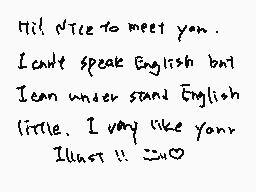 Hi! Nice to meet you.
I can't speak English but
I can under stand English
little. I very like your
Illust !! ニu♡